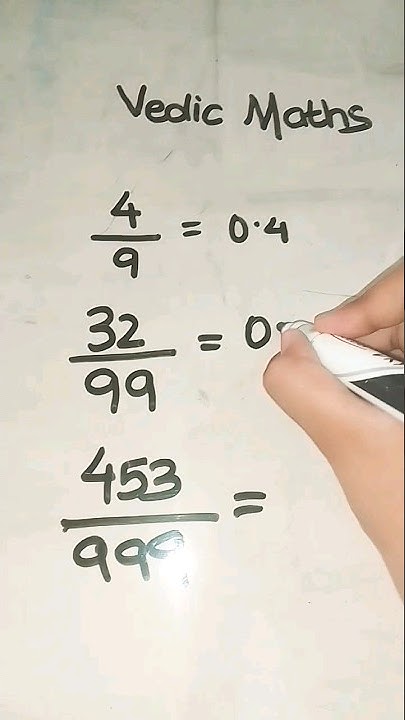 Vedic Maths
4/9 = 0.4
32/99 = 0.
453/999 =